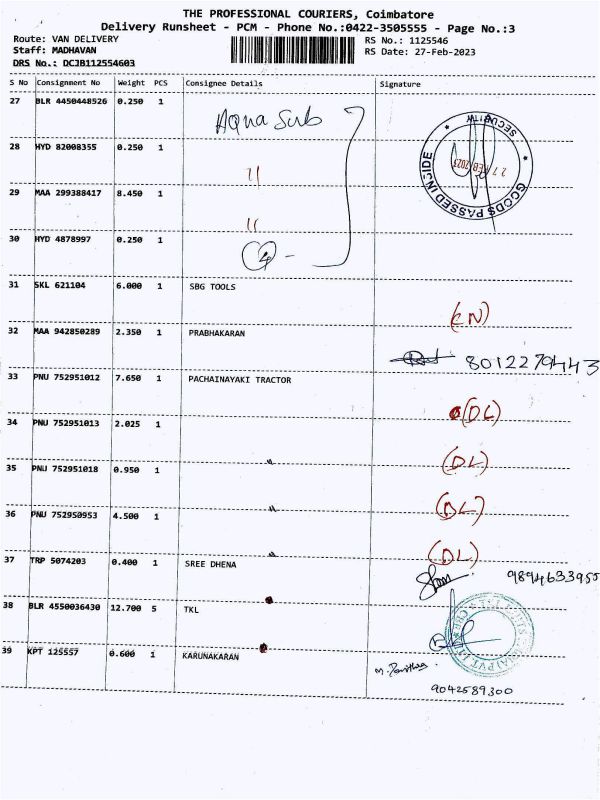 THE PROFESSIONAL COURIERS, Coimbatore
Delivery Runsheet - PCM - Phone No.:0422-3505555 - Page No.:3
Route: VAN DELIVERY RS No.: 1125546
Staff: MADHAVAN RS Date: 27-Feb-2023
DRS No.: DCJB112554603
S No Consignment No Weight PCS Consignee Details Signature
27 BLR 4450448526 0.250 1 Aqua Sub
28 HYD 82008355 0.250 1 "
29 MAA 299388417 8.450 1 "
30 HYD 4878997 0.250 1 4 -
SECURITY
27 FEB 2023
GOODS PASSED INSIDE
31 SKL 621104 6.000 1 SBG TOOLS (CN)
32 MAA 942850289 2.350 1 PRABHAKARAN 8012279443
33 PNU 752951012 7.650 1 PACHAINAYAKI TRACTOR (DL)
34 PNU 752951013 2.025 1 (DL)
35 PNU 752951018 0.950 1 " (DL)
36 PNU 752950953 4.500 1 " (DL)
37 TRP 5074203 0.400 1 " SREE DHENA 9894633955
38 BLR 4550036430 12.700 5 TKL
39 KPT 125557 0.600 1 KARUNAKARAN
9042589300